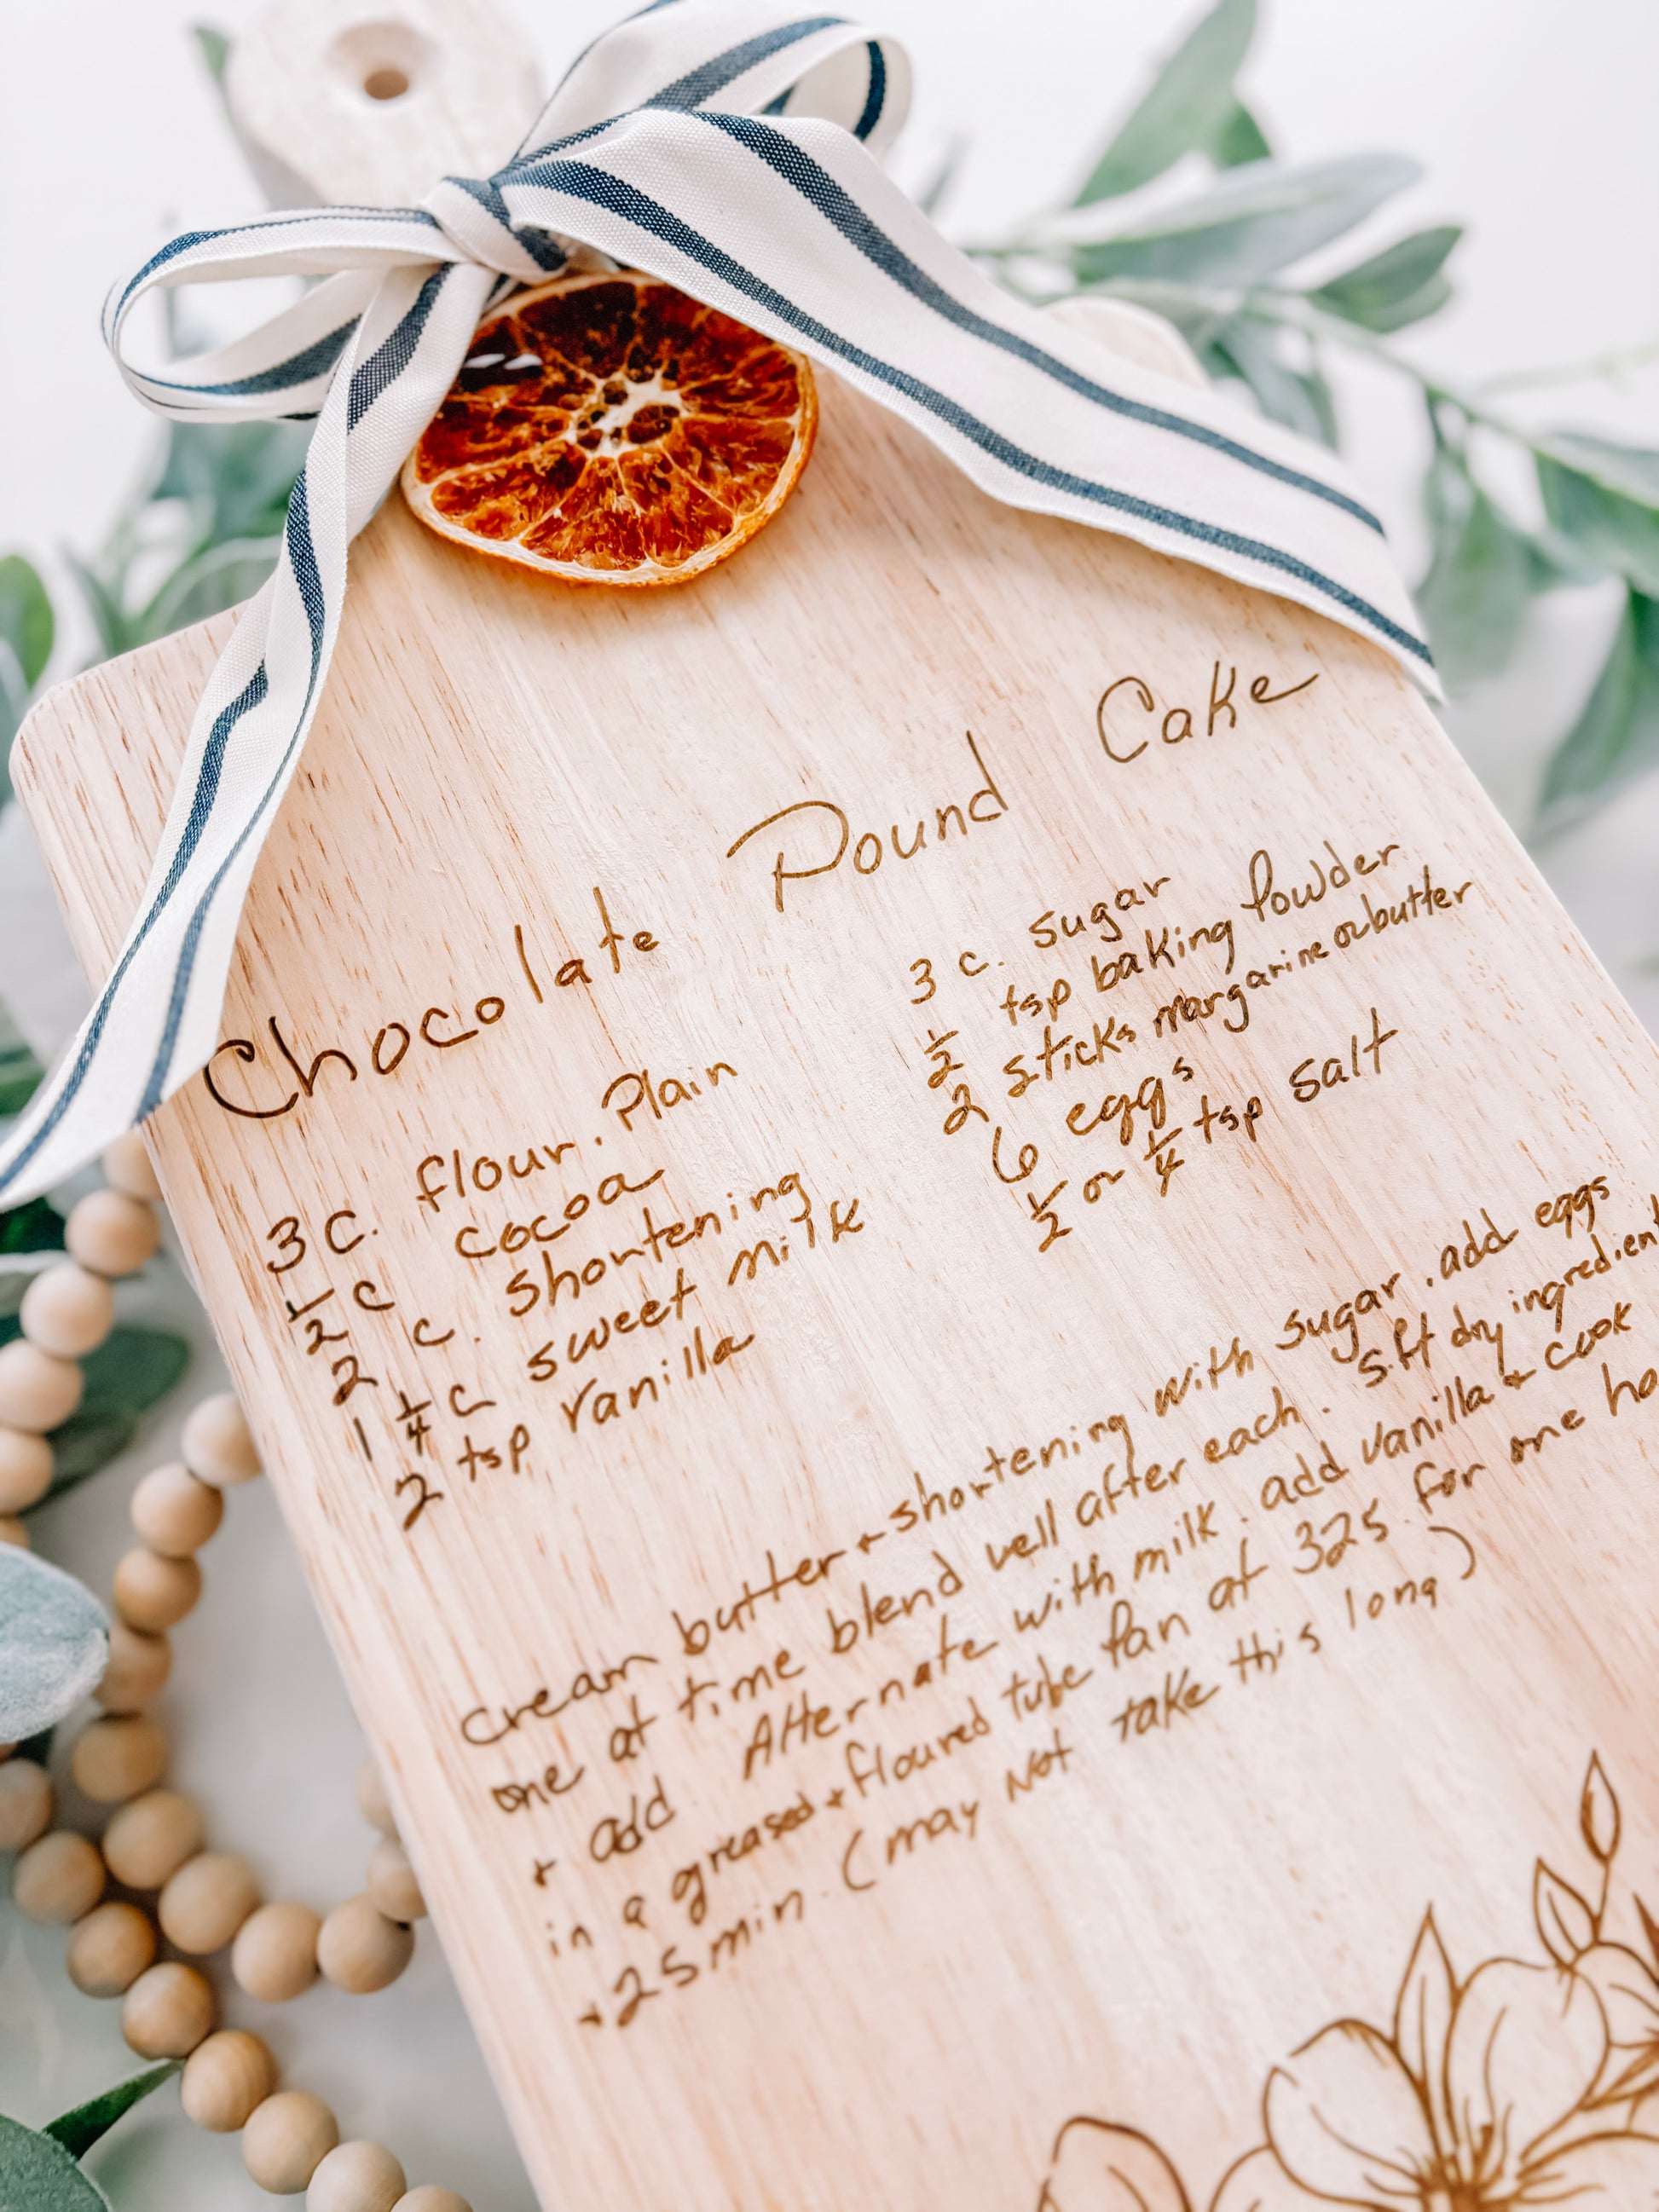 Chocolate Pound Cake
3 c. flour. Plain
1/2 c cocoa
2 c. shortening
1 1/4 c sweet milk
2 tsp vanilla
3 c. sugar
1/2 tsp baking Powder
2 sticks margarine or butter
6 eggs
1/2 or 1/4 tsp salt
Cream butter + shortening with sugar. add eggs
one at time blend well after each. Sift dry ingredient
+ add Alternate with milk. add vanilla + cook
in a greased + floured tube Pan at 325. for one ho
+ 25 min. (may Not take this long)